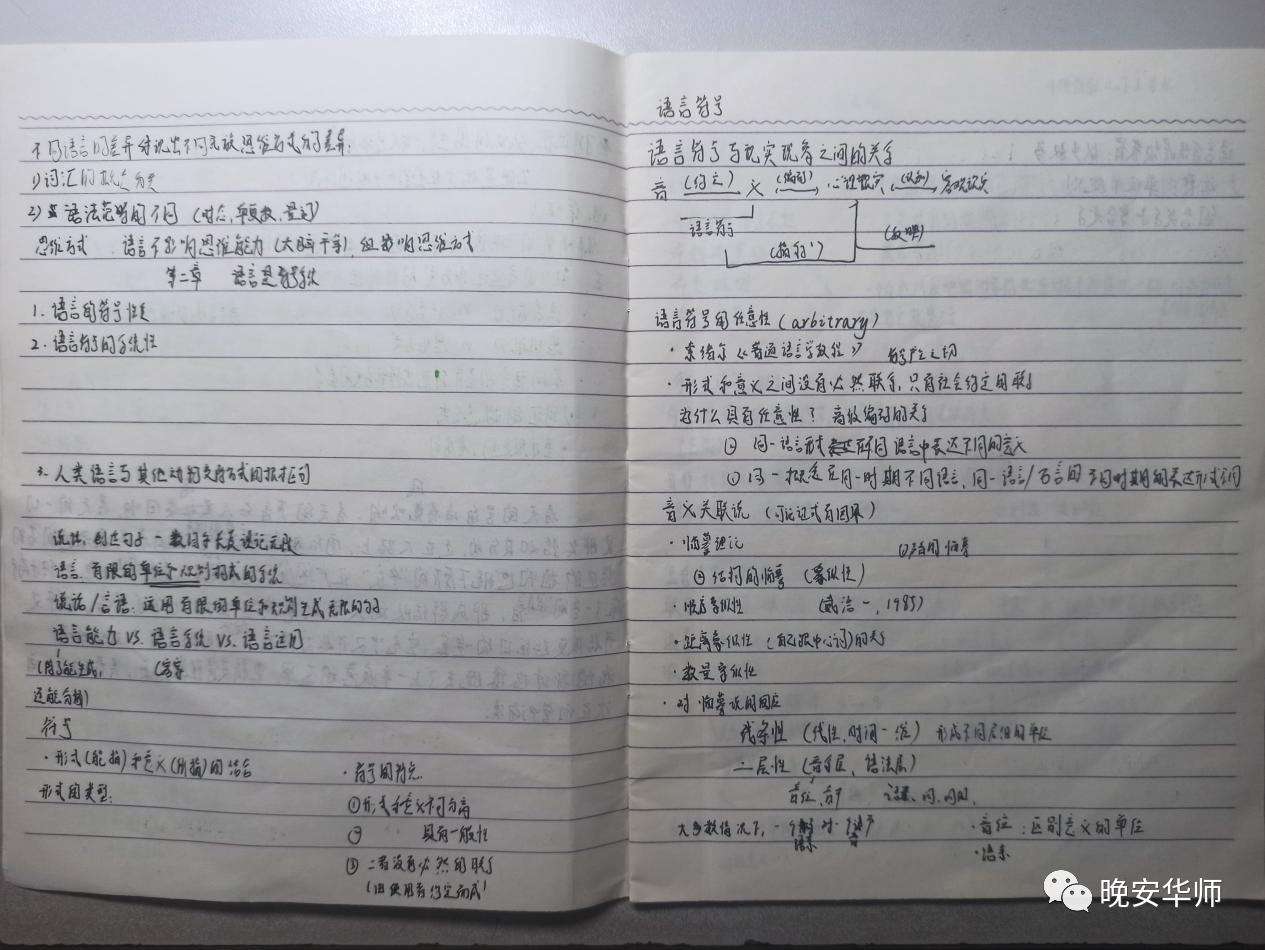 不同语言的差异体现出不同民族思维方式的差异:
1) 词汇的概念分类
2) 语法范畴的不同 (时态,单复数,量词)
思维方式 : 语言不影响思维能力 (大脑 干等), 但影响思维方式
第二章 语言是符号系统
1. 语言的符号性质
2. 语言符号的系统性
3. 人类语言与其他动物交际方式的根本区别
说法: 创造句子
语言: 有限的单位和规则构成的系统
说话/言语: 运用有限的单位和规则生成无限的句子
语言能力 vs. 语言系统 vs. 语言运用
还能分析)
符号
· 形式(能指)和意义(所指)的结合
· 符号的特点
形式的类型:
①形式和意义不可分离
② 具有一般性
③ 二者没有必然的联系
(由使用者约定而成)
语言符号
语言符号与现实现象之间的关系
音 (约定) 义 (编码) 心理现实 (反映) 客观现实
语言符号
(反映)
(指称)
语言符号的任意性 (arbitrary)
· 索绪尔《普通语言学教程》
· 形式和意义之间没有必然联系,只有社会约定的联系
为什么具有任意性? 高效编码的关系
② 同一语言形式在不同语言中表达不同的意义
① 同一概念在同一时期不同语言,同一语言/方言的不同时期的表达形式不同
音义关联说 (可论证或有因果)
· 临摹理论
①语音的临摹
② 结构的临摹 (象似性)
· 顺序象似性 (戴浩一, 1985)
· 距离象似性 (与中心词的关系)
· 数量象似性
· 对临摹说的回应
线条性 (线性,时间一维) 形成不同层级的单位
二层性 (音系层, 语法层)
音位,音节 语素、词、词组,
大多数情况下, 一个 对一个
语素 音
· 音位: 区别意义的单位
· 语素
晚安华师